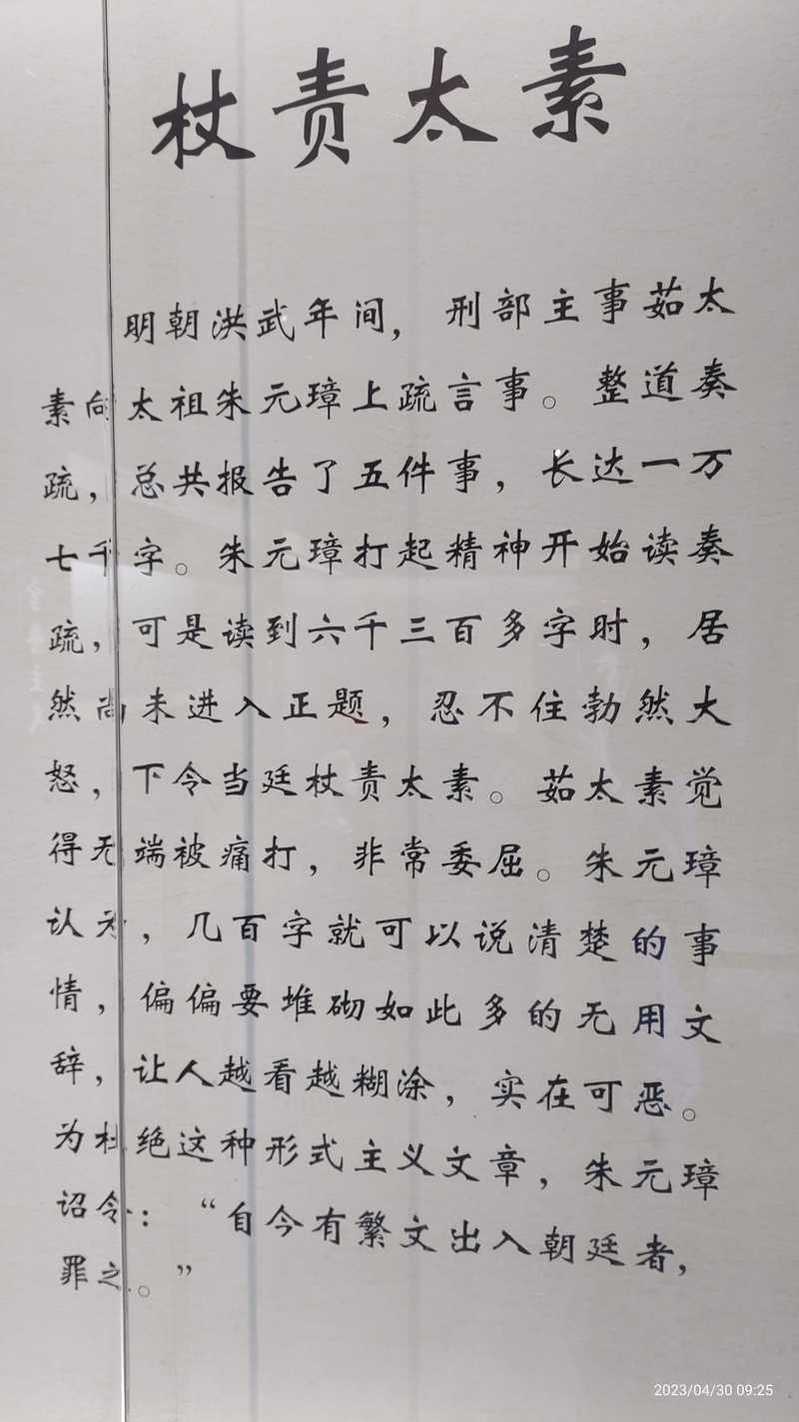 杖责太素
明朝洪武年间，刑部主事茹太
素向太祖朱元璋上疏言事。整道奏
疏，总共报告了五件事，长达一万
七千字。朱元璋打起精神开始读奏
疏，可是读到六千三百多字时，居
然尚未进入正题，忍不住勃然大
怒，下令当廷杖责太素。茹太素觉
得无端被痛打，非常委屈。朱元璋
认为，几百字就可以说清楚的事
情，偏偏要堆砌如此多的无用文
辞，让人越看越糊涂，实在可恶。
为杜绝这种形式主义文章，朱元璋
诏令：“自今有繁文出入朝廷者，
罪之。”
2023/04/30 09:25